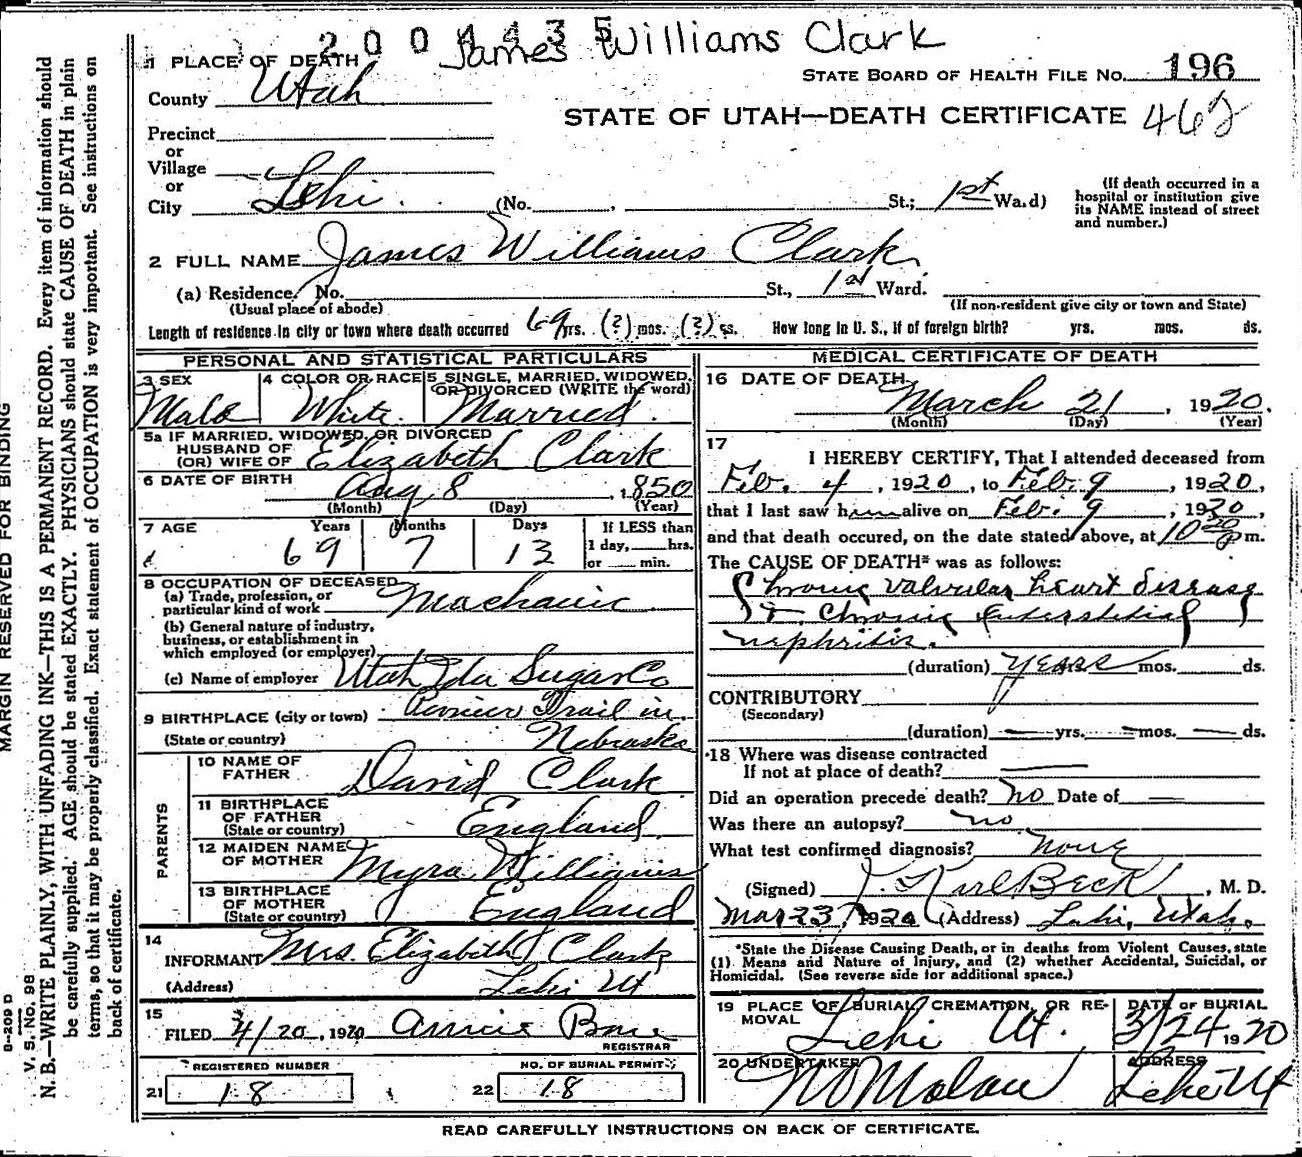 2004435
James Williams Clark
1 PLACE OF DEATH
STATE BOARD OF HEALTH FILE NO. 196
County Utah
STATE OF UTAH—DEATH CERTIFICATE 462
Precinct
or
Village
or
City Lehi. (No. , St.; 1st Ward)
(If death occurred in a
hospital or institution give
its NAME instead of street
and number.)
2 FULL NAME James Williams Clark
(a) Residence. No. St., 1st Ward.
(Usual place of abode) (If non-resident give city or town and State)
Length of residence in city or town where death occurred 69 yrs. (?) mos. (?) ds. How long in U. S., if of foreign birth? yrs. mos. ds.
PERSONAL AND STATISTICAL PARTICULARS
3 SEX 4 COLOR OR RACE 5 SINGLE, MARRIED, WIDOWED,
OR DIVORCED (WRITE the word)
Male White Married.
5a IF MARRIED, WIDOWED, OR DIVORCED
HUSBAND OF
(OR) WIFE OF Elizabeth Clark
6 DATE OF BIRTH Aug 8, 1850
(Month) (Day) (Year)
7 AGE Years Months Days If LESS than
1 day, hrs.
or min.
69 7 13
8 OCCUPATION OF DECEASED
(a) Trade, profession, or
particular kind of work Machanic
(b) General nature of industry,
business, or establishment in
which employed (or employer)
(c) Name of employer Utah Ida Sugar Co
9 BIRTHPLACE (city or town) Pioneer Trail in
(State or country) Nebraska
PARENTS
10 NAME OF
FATHER David Clark
11 BIRTHPLACE
OF FATHER
(State or country) England
12 MAIDEN NAME
OF MOTHER Myra Williams
13 BIRTHPLACE
OF MOTHER
(State or country) England
14
INFORMANT Mrs. Elizabeth J Clark
(Address) Lehi Ut
15
FILED 4/20, 1920 Annie
REGISTRAR
REGISTERED NUMBER NO. OF BURIAL PERMIT
21 18 22 18
MEDICAL CERTIFICATE OF DEATH
16 DATE OF DEATH
March 21, 1920.
(Month) (Day) (Year)
17
I HEREBY CERTIFY, That I attended deceased from
Feb. 4, 1920, to Feb. 9, 1920,
that I last saw him alive on Feb. 9, 1920,
and that death occured, on the date stated above, at 10 20 p m.
The CAUSE OF DEATH* was as follows:
Chronic valvular heart disease
& Chronic Interstitial
nephritis.
(duration) years mos. ds.
CONTRIBUTORY
(Secondary)
(duration) — yrs. — mos. — ds.
18 Where was disease contracted
If not at place of death? —
Did an operation precede death? No Date of —
Was there an autopsy? no
What test confirmed diagnosis? None
(Signed) J. Karl Beck, M. D.
Mar 23, 1920 (Address) Lehi, Utah.
*State the Disease Causing Death, or in deaths from Violent Causes, state
(1) Means and Nature of Injury, and (2) whether Accidental, Suicidal, or
Homicidal. (See reverse side for additional space.)
19 PLACE OF BURIAL, CREMATION, OR RE- DATE OF BURIAL
MOVAL Lehi Ut. 3/24 1920
20 UNDERTAKER ADDRESS
Lehi Ut
READ CAREFULLY INSTRUCTIONS ON BACK OF CERTIFICATE.
MARGIN RESERVED FOR BINDING
B-209 D
V. S. No. 98
N. B.—WRITE PLAINLY, WITH UNFADING INK—THIS IS A PERMANENT RECORD. Every item of information should
be carefully supplied. AGE should be stated EXACTLY. PHYSICIANS should state CAUSE OF DEATH in plain
terms, so that it may be properly classified. Exact statement of OCCUPATION is very important. See instructions on
back of certificate.